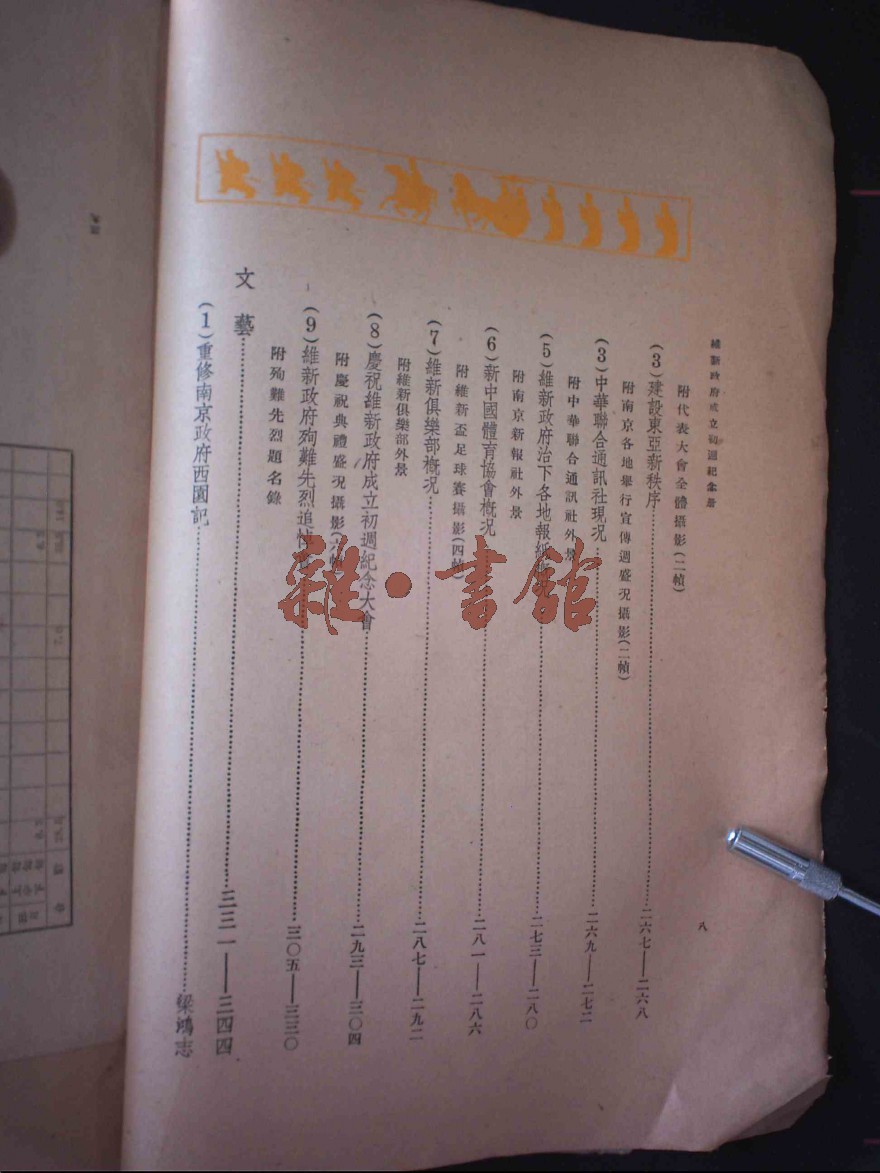 維新政府成立初週紀念冊
八
附代表大會全體攝影(二幀)
(3)建設東亞新秩序……二六七——二六八
附南京各地舉行宣傳週盛況攝影(二幀)
(3)中華聯合通訊社現況……二六九——二七二
附中華聯合通訊社外景
(5)維新政府治下各地報紙……二七三——二八〇
附南京新報社外景
(6)新中國體育協會概況……二八一——二八六
附維新盃足球賽攝影(四幀)
(7)維新俱樂部概況……二八七——二九二
附維新俱樂部外景
(8)慶祝維新政府成立初週紀念大會……二九三——三〇四
附慶祝典禮盛況攝影(六幀)
(9)維新政府殉難先烈追悼……三〇五——三三〇
附殉難先烈題名錄
文藝……三三一——三四四
(1)重修南京政府西園記……梁鴻志
雜·書館